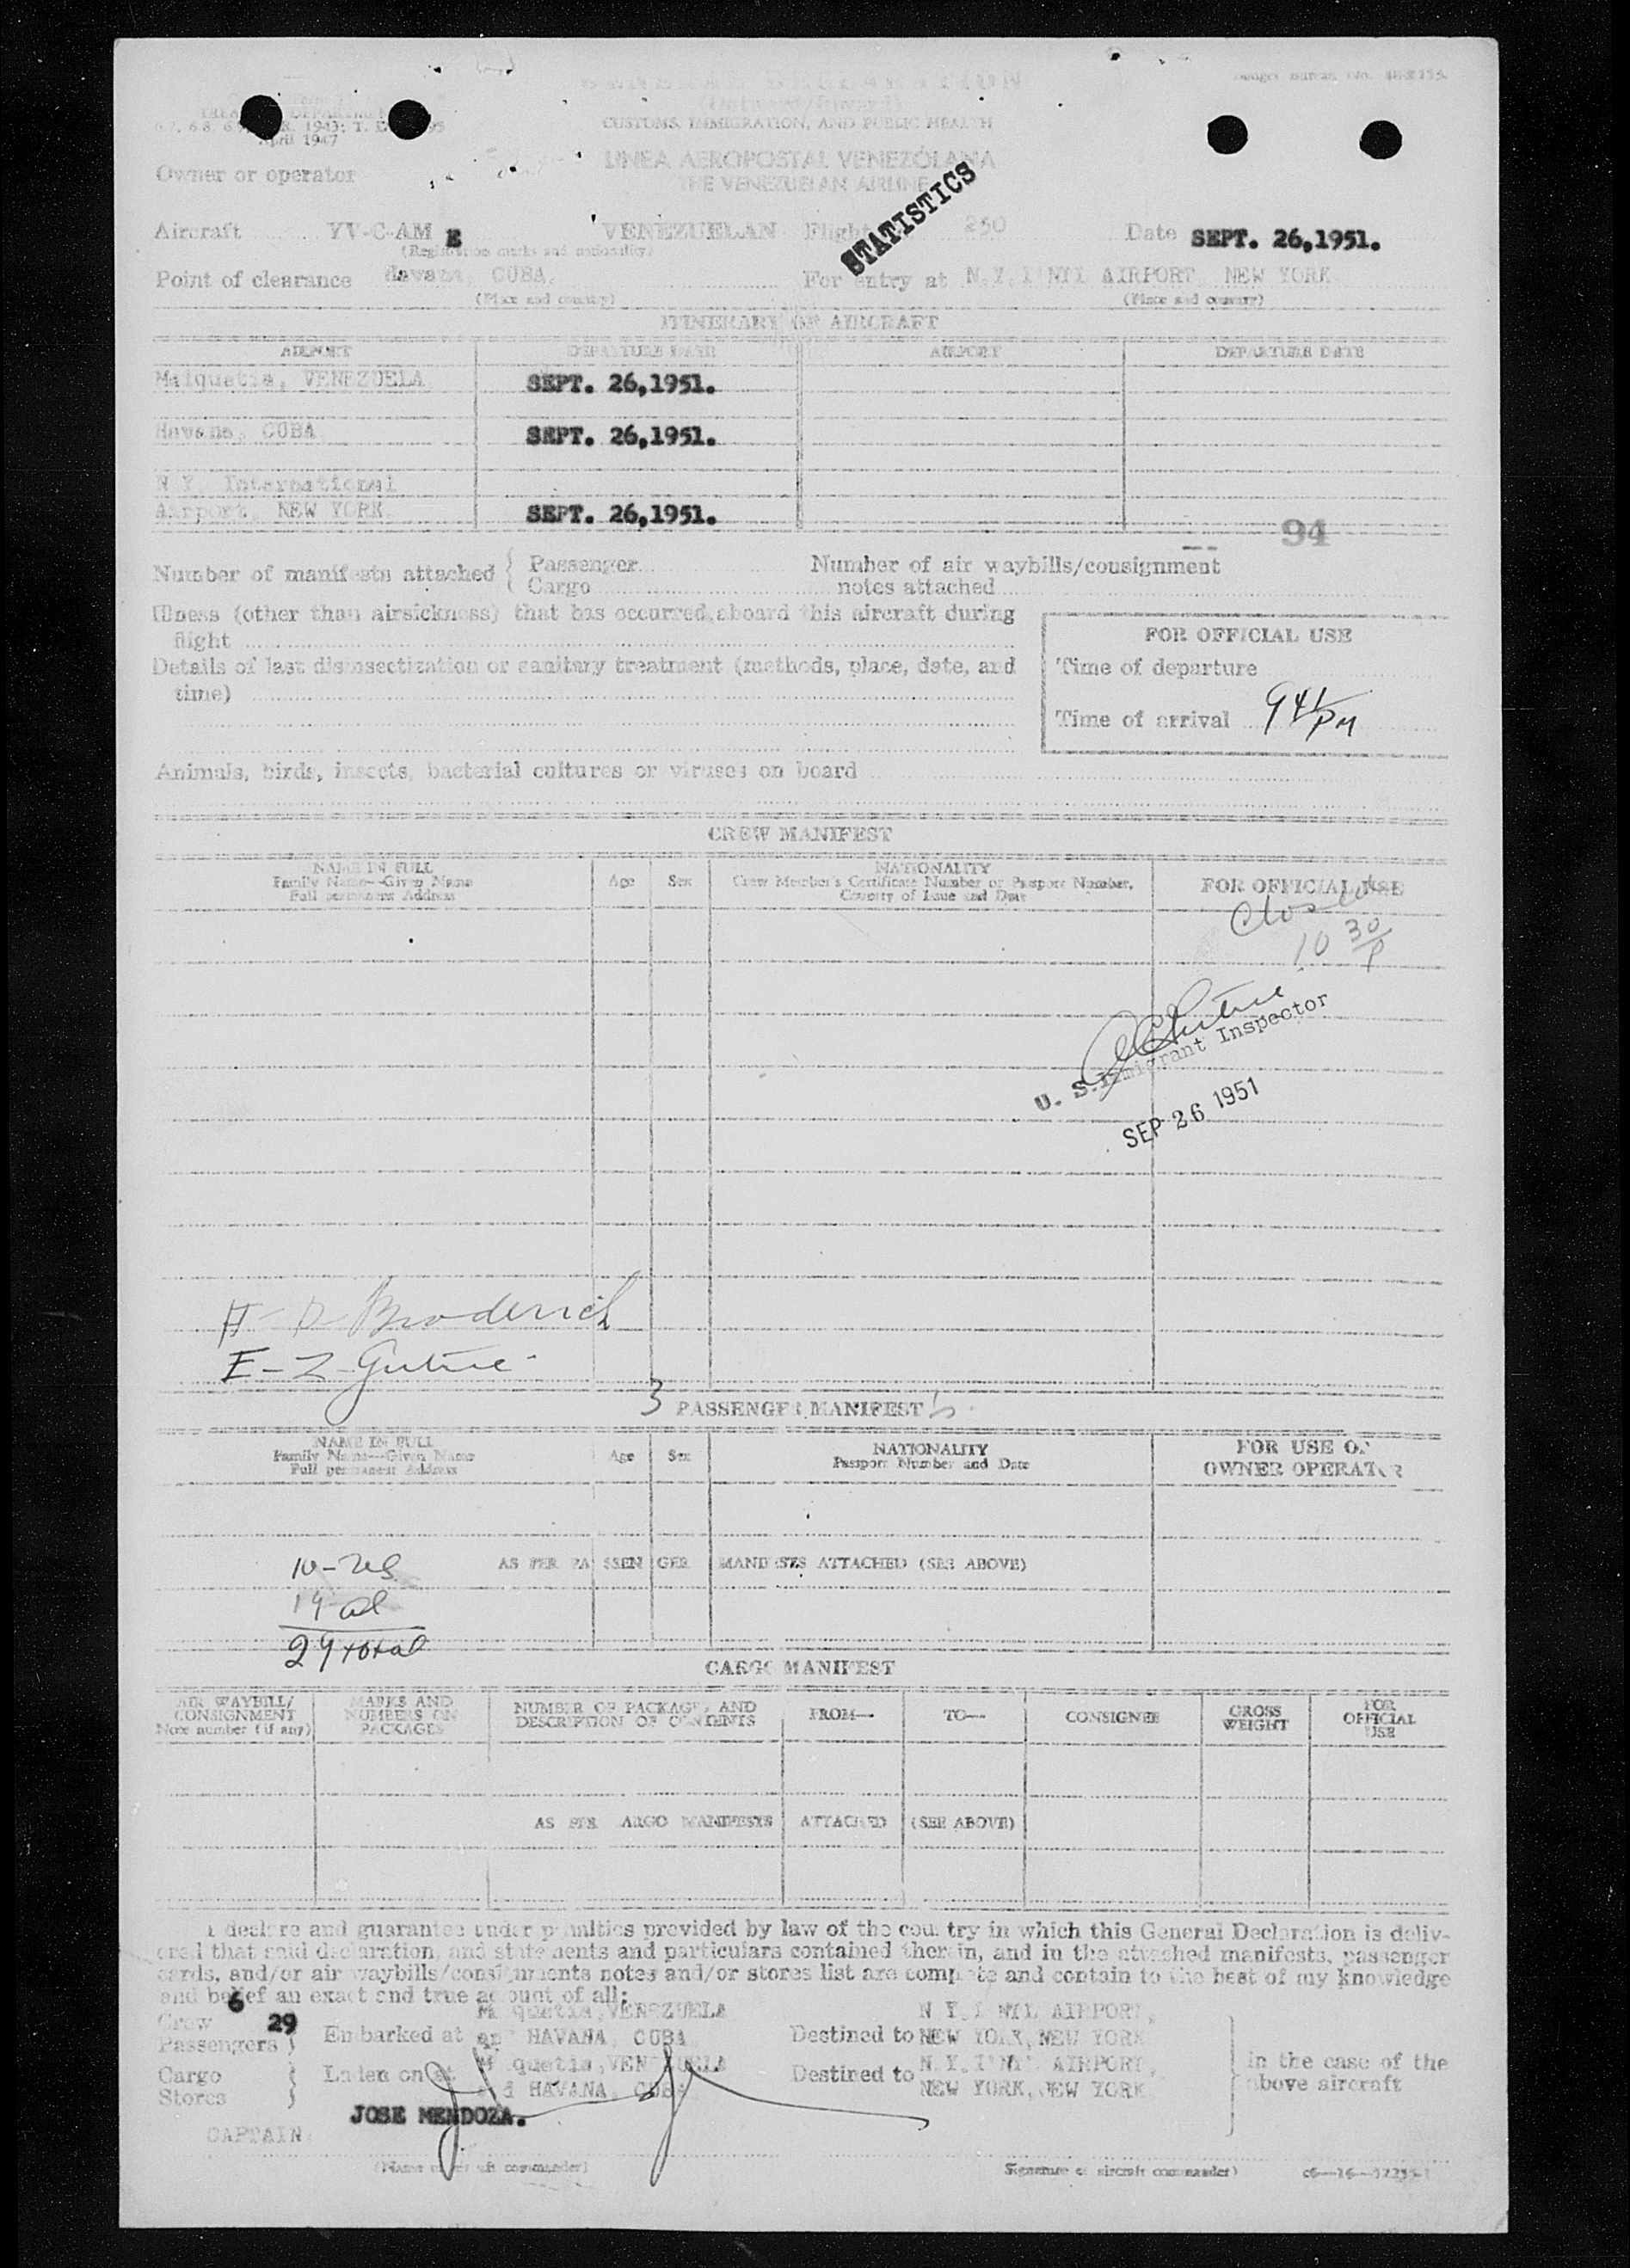 April 1947
CUSTOMS, IMMIGRATION, AND PUBLIC HEALTH
LINEA AEROPOSTAL VENEZOLANA
THE VENEZUELAN AIRLINE
STATISTICS
Owner or operator
Aircraft YV-C-AM E VENEZUELAN Flight 250 Date SEPT. 26,1951.
(Registration marks and nationality)
Point of clearance Havana, CUBA. For entry at N.Y. I'NT'L AIRPORT NEW YORK
(Place and country) (Place and country)
ITINERARY OF AIRCRAFT
AIRPORT DEPARTURE DATE AIRPORT DEPARTURE DATE
Maiquetia, VENEZUELA SEPT. 26,1951.
Havana, CUBA SEPT. 26,1951.
N.Y. International
Airport, NEW YORK SEPT. 26,1951.
94
Number of manifests attached { Passenger
Cargo
Number of air waybills/consignment
notes attached
Illness (other than airsickness) that has occurred aboard this aircraft during
flight
Details of last disinsectization or sanitary treatment (methods, place, date, and
time)
FOR OFFICIAL USE
Time of departure
Time of arrival 941/PM
Animals, birds, insects, bacterial cultures or viruses on board
CREW MANIFEST
NAME IN FULL
Family Name--Given Name
Full permanent Address
Age Sex
NATIONALITY
Crew Member's Certificate Number or Passport Number,
Country of Issue and Date
FOR OFFICIAL USE
Closed
10 30/P
U. S. Immigrant Inspector
SEP 26 1951
H - D - Broderick
E - Z - Guthrie
3 PASSENGER MANIFEST
NAME IN FULL
Family Name--Given Name
Full permanent Address
Age Sex
NATIONALITY
Passport Number and Date
FOR USE OF
OWNER OPERATOR
AS PER PASSENGER MANIFESTS ATTACHED (SEE ABOVE)
10 - US
19 al
29 total
CARGO MANIFEST
AIR WAYBILL/
CONSIGNMENT
Note number (if any)
MARKS AND
NUMBERS ON
PACKAGES
NUMBER OF PACKAGES AND
DESCRIPTION OF CONTENTS
FROM— TO— CONSIGNEE
GROSS
WEIGHT
FOR
OFFICIAL
USE
AS PER CARGO MANIFESTS ATTACHED (SEE ABOVE)
I declare and guarantee under penalties provided by law of the country in which this General Declaration is deliv-
ered that said declaration, and statements and particulars contained therein, and in the attached manifests, passenger
cards, and/or air waybills/consignments notes and/or stores list are complete and contain to the best of my knowledge
and belief an exact and true account of all:
Crew 6
Passengers 29 } Embarked at Maiquetia, VENEZUELA
and HAVANA, CUBA
Destined to N.Y. I'NT'L AIRPORT,
NEW YORK, NEW YORK
Cargo
Stores } Laden on at Maiquetia, VENEZUELA
and HAVANA, CUBA
Destined to N.Y. I'NT'L AIRPORT,
NEW YORK, NEW YORK
In the case of the
above aircraft
JOSE MENDOZA.
CAPTAIN
(Name of aircraft commander) Signature of aircraft commander)